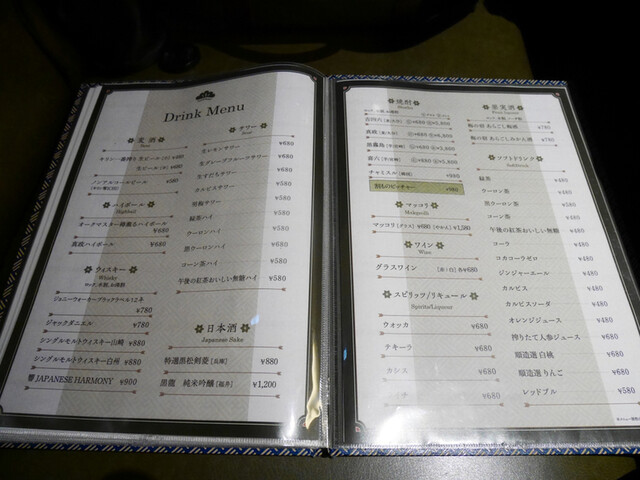 Drink Menu
麦酒
Beer
キリン一番搾り 生ビール(小) ¥480
生ビール(中) ¥680
ノンアルコールビール ¥580
ハイボール
Highball
オークマスター樽薫るハイボール
¥680
真政ハイボール ¥680
ウィスキー
Whisky
ロック、水割、お湯割
ジョニーウォーカーブラックラベル12年
¥780
ジャックダニエル ¥780
シングルモルトウィスキー山崎 ¥880
シングルモルトウィスキー白州 ¥880
響 JAPANESE HARMONY ¥900
サワー
Sour
生レモンサワー ¥680
生グレープフルーツサワー ¥680
生すだちサワー ¥580
カルピスサワー ¥580
男梅サワー ¥580
緑茶ハイ ¥580
ウーロンハイ ¥580
黒ウーロンハイ ¥580
コーン茶ハイ ¥580
午後の紅茶おいしい無糖ハイ ¥580
日本酒
Japanese Sake
特選黒松剣菱 [兵庫] ¥880
黒龍 純米吟醸 [福井] ¥1,200
焼酎
Shochu
チャミスル [韓国] ¥980
割りものピッチャー ¥980
マッコリ
Makgeolli
マッコリ [グラス] ¥680 [やかん] ¥1,580
ワイン
Wine
グラスワイン [赤・白] 各¥680
スピリッツ/リキュール
Spirits/Liqueur
ウォッカ ¥680
テキーラ ¥680
カシス ¥680
¥680
果実酒
梅の宿 あらごし梅酒 ¥780
梅の宿 あらごしみかん酒 ¥780
ソフトドリンク
Softdrink
緑茶 ¥480
ウーロン茶 ¥480
黒ウーロン茶 ¥480
コーン茶 ¥480
午後の紅茶おいしい無糖 ¥480
コーラ ¥480
コカコーラゼロ ¥480
ジンジャーエール ¥480
カルピス ¥480
カルピスソーダ ¥480
オレンジジュース ¥480
搾りたて人参ジュース ¥580
順造選 白桃 ¥680
順造選 りんご ¥680
レッドブル ¥580